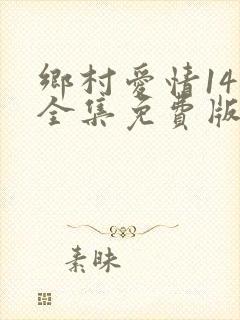 鄉村愛情14
全集免費版
素昧